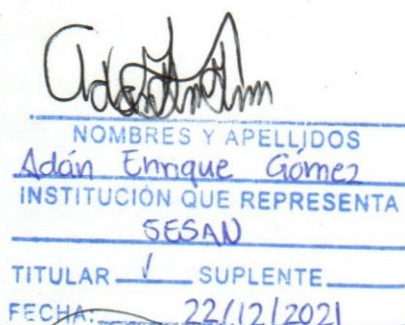 NOMBRES Y APELLIDOS
Adán Enrique Gómez
INSTITUCIÓN QUE REPRESENTA
SESAN
TITULAR √ SUPLENTE
FECHA: 22/12/2021